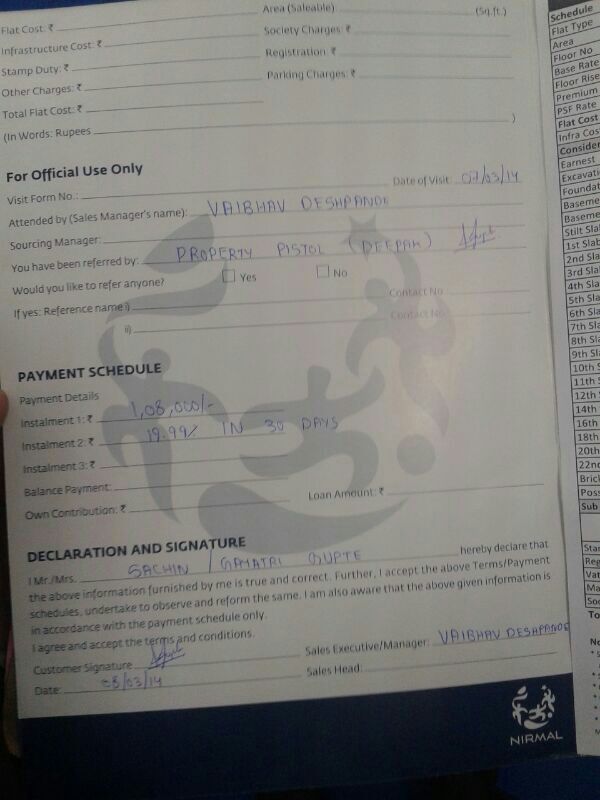 Flat Cost: ₹ Area (Saleable): (Sq.ft.)
Infrastructure Cost: ₹ Society Charges: ₹
Stamp Duty: ₹ Registration: ₹
Other Charges: ₹ Parking Charges: ₹
Total Flat Cost: ₹
(In Words: Rupees )
For Official Use Only
Visit Form No.: Date of Visit: 07/03/14
Attended by (Sales Manager's name): VAIBHAV DESHPANDE
Sourcing Manager:
You have been referred by: PROPERTY PISTOL (DEEPAK)
Would you like to refer anyone? Yes No
If yes: Reference name i) Contact No
ii) Contact No
PAYMENT SCHEDULE
Payment Details
Instalment 1: ₹ 1,08,000/-
Instalment 2: ₹ 19.99% IN 30 DAYS
Instalment 3: ₹
Balance Payment:
Own Contribution: ₹ Loan Amount: ₹
DECLARATION AND SIGNATURE
I Mr./Mrs. SACHIN / GAYATRI GUPTE hereby declare that
the above information furnished by me is true and correct. Further, I accept the above Terms/Payment
schedules, undertake to observe and reform the same. I am also aware that the above given information is
in accordance with the payment schedule only.
I agree and accept the terms and conditions.
Customer Signature Sales Executive/Manager: VAIBHAV DESHPANDE
Date: 08/03/14 Sales Head:
NIRMAL
Schedule
Flat Type
Area
Floor No
Base Rate
Floor Rise
Premium
PSF Rate
Flat Cost
Infra Cos
Consider
Earnest
Excavati
Foundat
Baseme
Baseme
Stilt Sla
1st Slab
2nd Sla
3rd Sla
4th Sla
5th Sla
6th Sla
7th Sla
8th Sla
9th Sla
10th S
11th S
12th S
14th
16th
18th
20th
22nd
Brick
Poss
Sub
Star
Reg
Vat
Ma
Soc
To